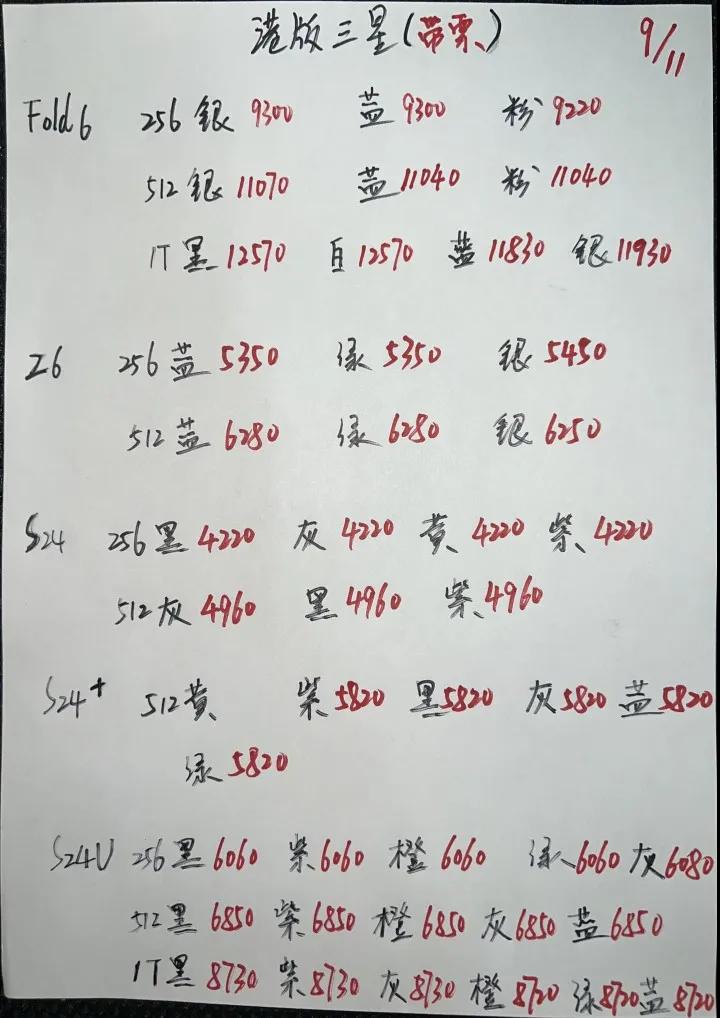 港版三星(带票) 9/11
Fold6 256 银 9300 蓝 9300 粉 9220
512 银 11070 蓝 11040 粉 11040
1T 黑 12570 白 12570 蓝 11830 银 11930
Z6 256 蓝 5350 绿 5350 银 5450
512 蓝 6280 绿 6280 银 6250
S24 256 黑 4220 灰 4220 黄 4220 紫 4220
512 灰 4960 黑 4960 紫 4960
S24+ 512 黄 紫 5820 黑 5820 灰 5820 蓝 5820
绿 5820
S24U 256 黑 6060 紫 6060 橙 6060 绿 6060 灰 6080
512 黑 6850 紫 6850 橙 6850 灰 6850 蓝 6850
1T 黑 8730 紫 8730 灰 8730 橙 8720 绿 8720 蓝 8720